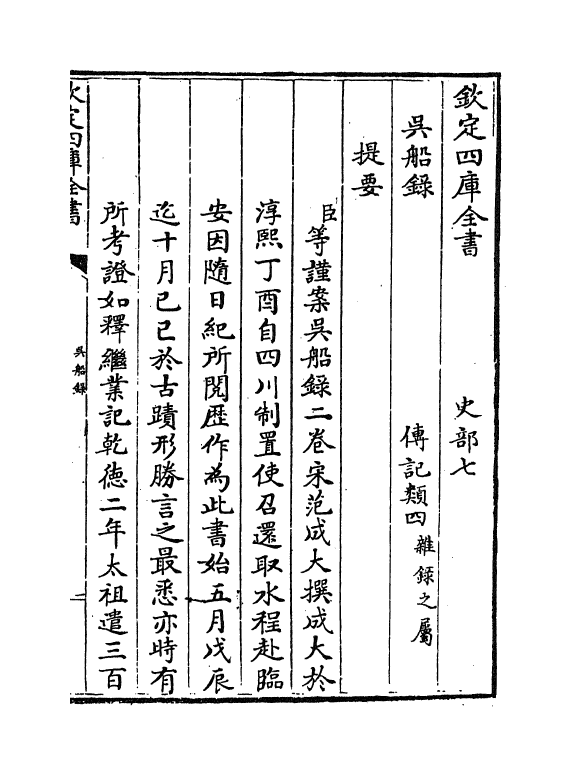 欽定四庫全書 史部七
吳船録 傳記類四雜録之屬
提要
臣等謹案吳船録二卷宋范成大撰成大於
淳熙丁酉自四川制置使召還取水程赴臨
安因隨日紀所閱歷作為此書始五月戊辰
迄十月己巳於古蹟形勝言之最悉亦時有
所考證如釋繼業記乾徳二年太祖遣三百
欽定四庫全書 吳船録